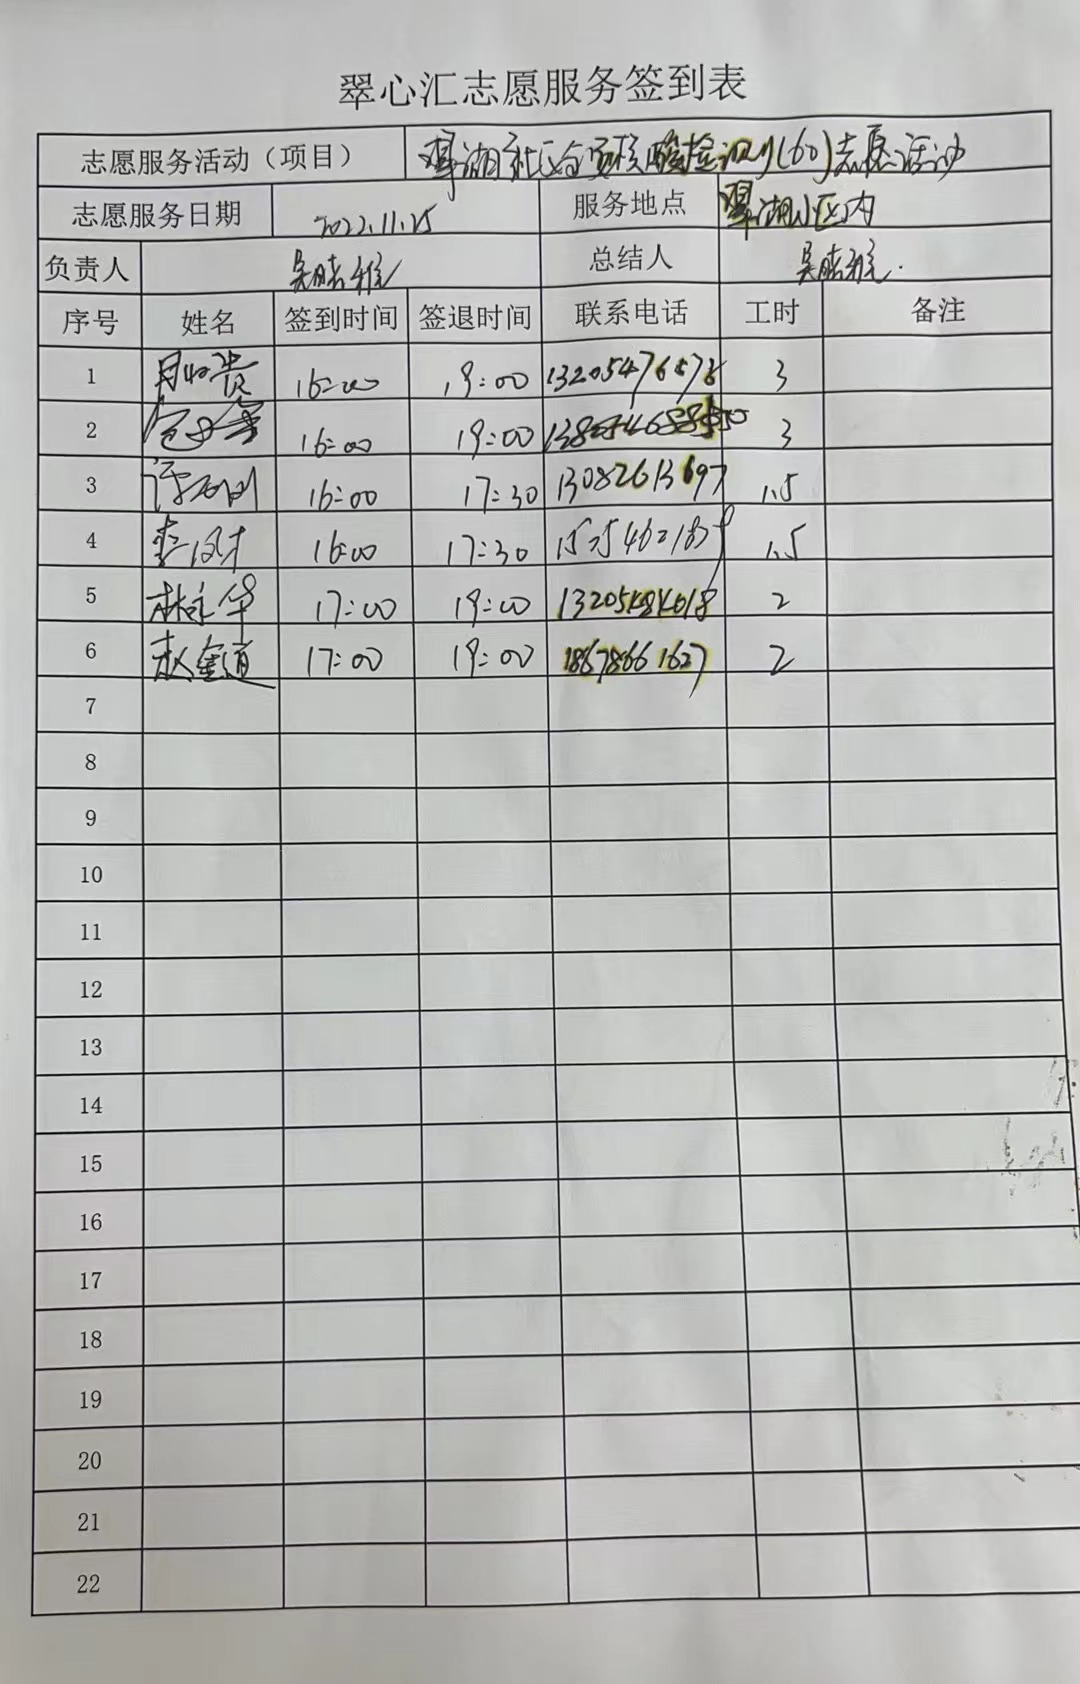 翠心汇志愿服务签到表
志愿服务活动（项目） 翠湖社区全员核酸检测(60)志愿活动
志愿服务日期 2022.11.25 服务地点 翠湖小区内
负责人 吴晓雅 总结人 吴晓雅.
序号 姓名 签到时间 签退时间 联系电话 工时 备注
1 16:00 19:00 3
2 16:00 19:00 3
3 16:00 17:30 13082613697 1.5
4 16:00 17:30 1.5
5 林永华 17:00 19:00 2
6 赵金道 17:00 19:00 18678661627 2
7
8
9
10
11
12
13
14
15
16
17
18
19
20
21
22